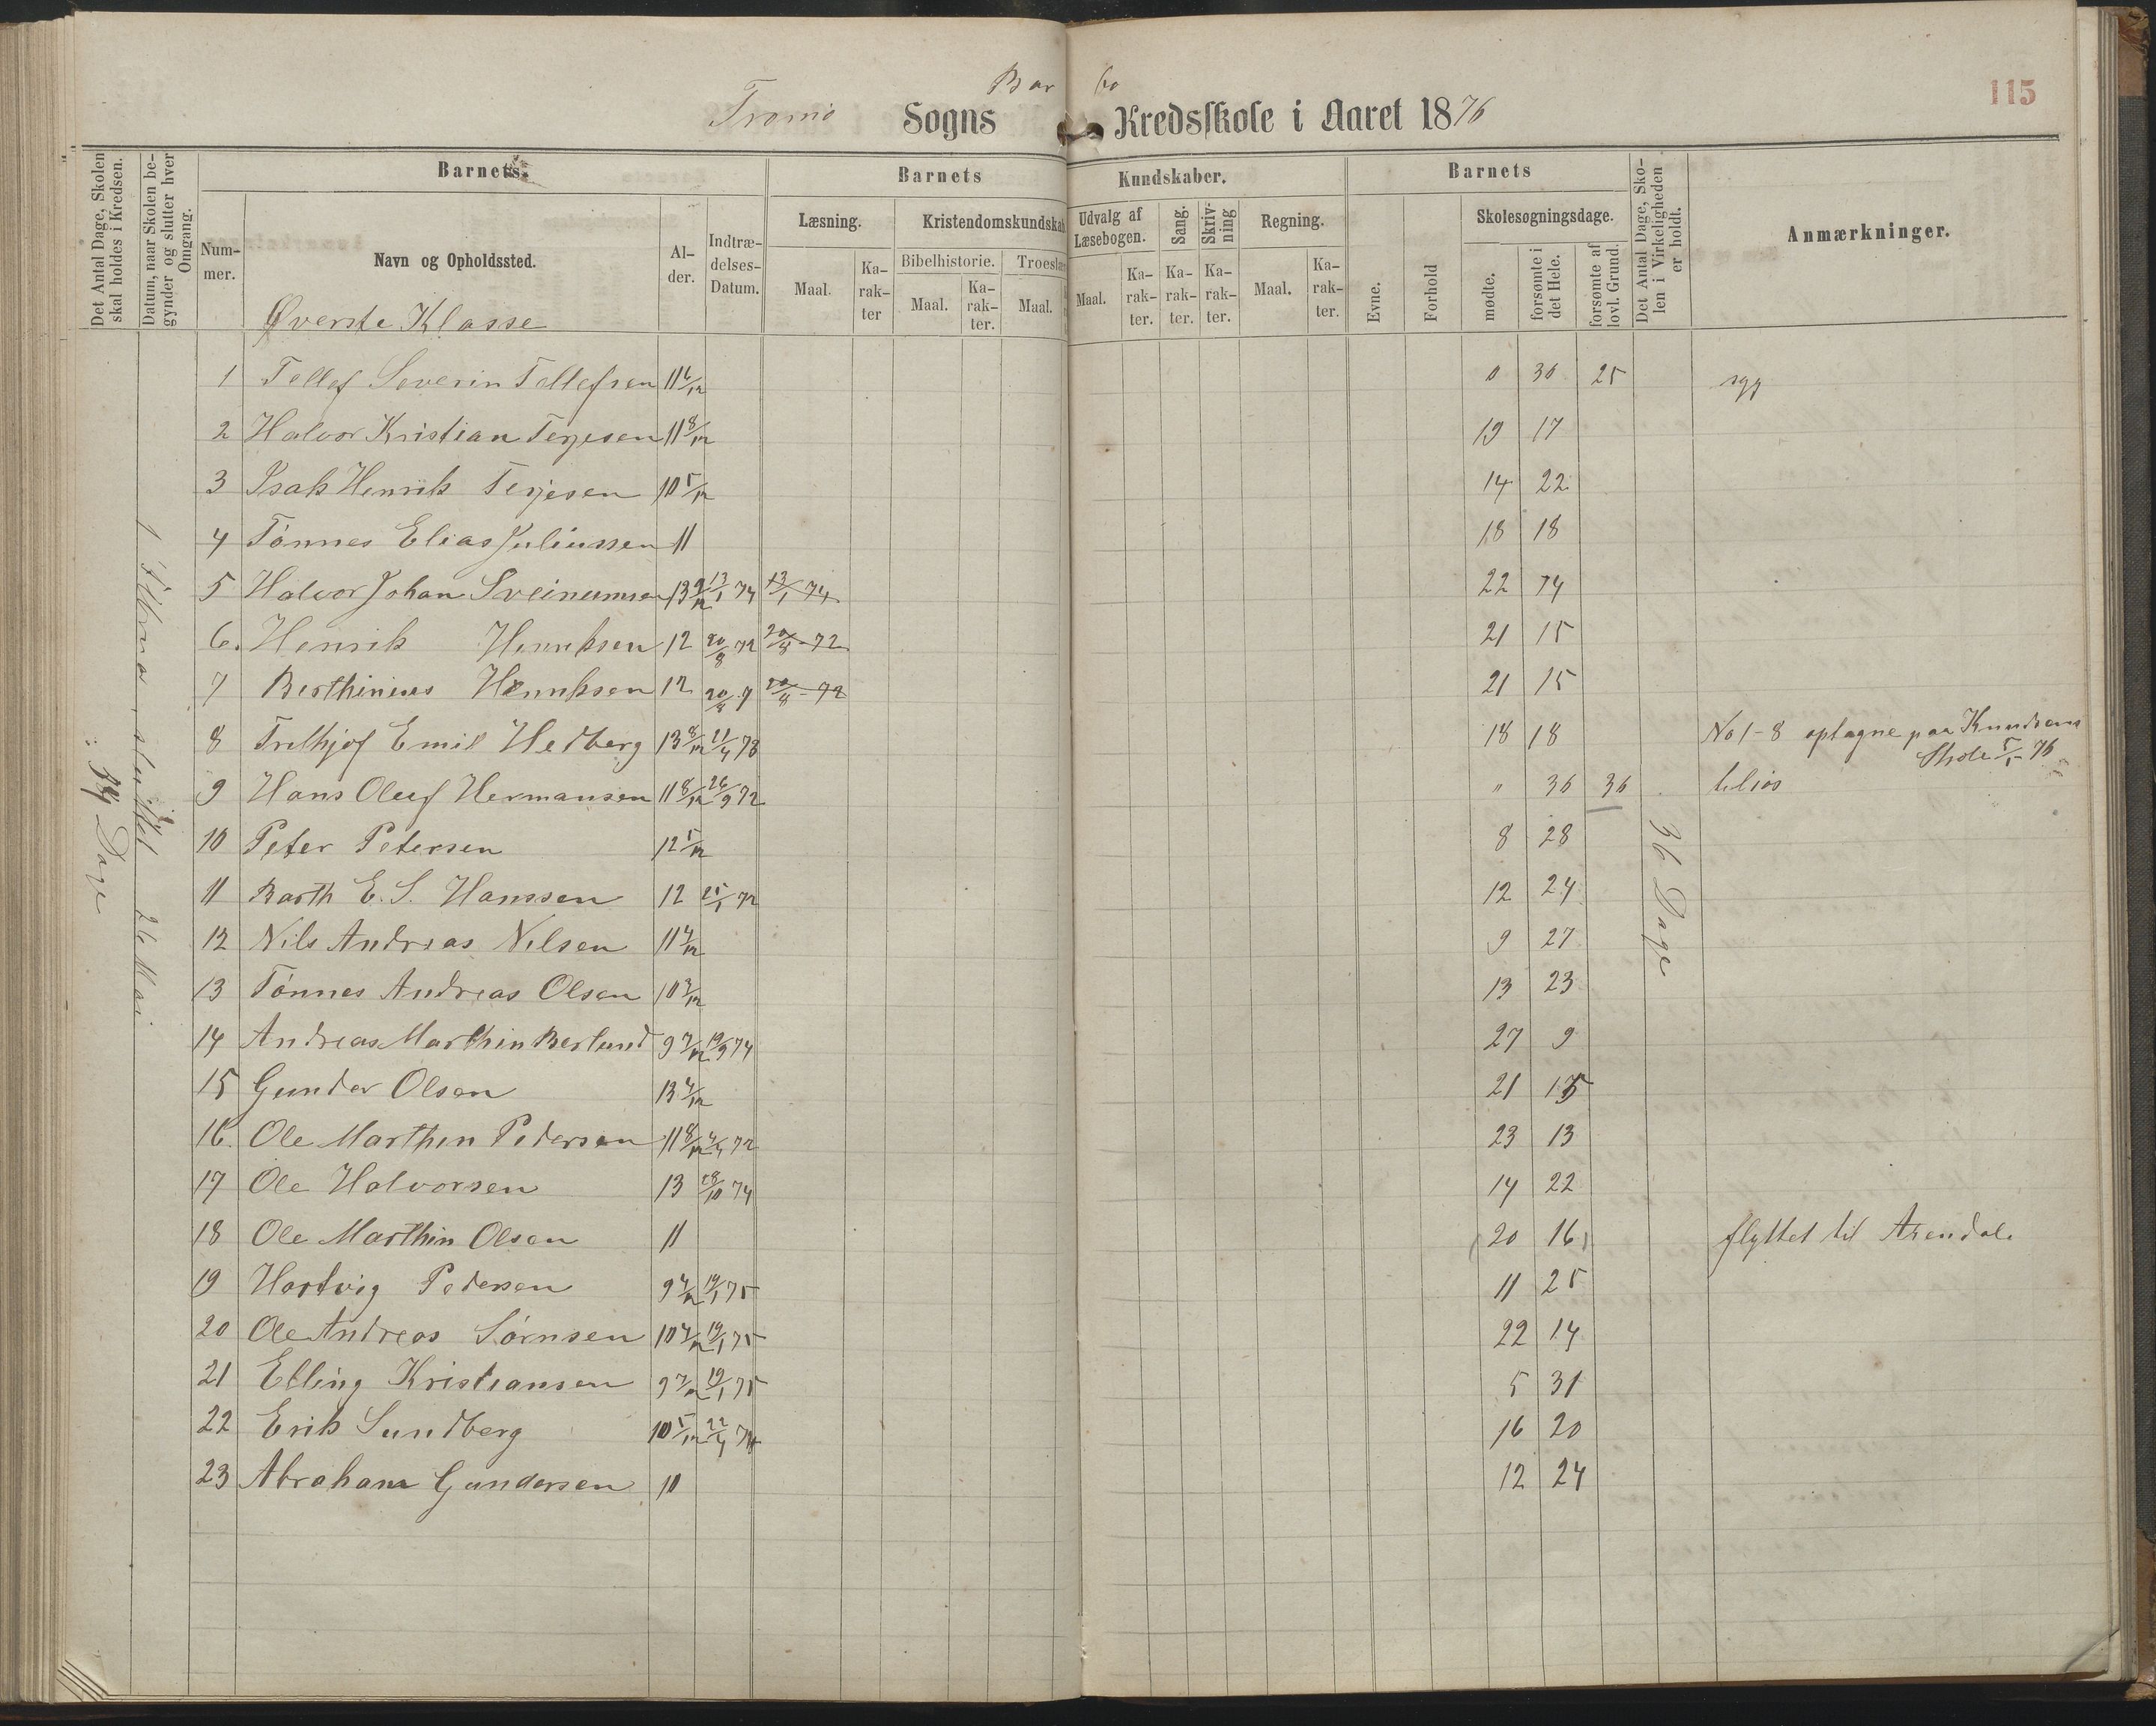 Bar bo
115
Tromö Sogns Kredsskole i Aaret 1876
Det Antal Dage, Skolen skal holdes i Kredsen.
Datum, naar Skolen begynder og slutter hver Omgang.
Barnets
Barnets Kundskaber.
Barnets
Det Antal Dage, Skolen i Virkeligheden er holdt.
Anmærkninger.
Nummer.
Navn og Opholdssted.
Alder.
Indtrædelses-Datum.
Læsning.
Kristendomskundskab
Udvalg af Læsebogen.
Sang.
Skrivning
Regning.
Evne.
Forhold
Skolesøgningsdage.
Bibelhistorie.
Troeslær
Maal.
Karakter
Maal.
Karakter.
Maal.
Maal.
Karakter.
Karakter.
Karakter.
Maal.
Karakter.
mødte.
forsømte i det Hele.
forsømte af lovl. Grund.
Øverste Klasse
1 Tellef Severin Tellefsen 11 6/12 0 36 25 syg
2 Halvor Kristian Terjesen 11 8/12 19 17
3 Isak Henrik Terjesen 10 5/12 14 22
4 Tønnes Elias Juliussen 11 18 18
5 Halvor Johan Sveinumsen 13 9/12 13/1 74 13/1 74 22 14
6. Henrik Henriksen 12 20/8 72 20/8 - 72 21 15
7 Berthinius Henriksen 12 20/8 7 20/8 - 72 21 15
8 Frithjof Emil Hedberg 13 8/12 21/4 73 18 18 No 1-8 optagne paa Knudsens Skole 5/1 - 76
9 Hans Oluf Hermansen 11 8/12 26/9 72 " 36 36
10 Peter Petersen 12 5/12 8 28
11 Barth E. S. Hanssen 12 25/1 72 12 24
12 Nils Andreas Nilsen 11 4/12 9 27
13 Tønnes Andreas Olsen 10 3/12 13 23
14 Andreas Marthin Berlund 9 7/12 19/9 74 27 9
15 Gunder Olsen 13 4/12 21 15
16. Ole Marthin Pedersen 11 8/12 4/4 72 23 13
17 Ole Halvorsen 13 28/10 74 14 22
18 Ole Marthin Olsen 11 (20 16) flyttet til Arendal.
19 Hartvig Pedersen 9 4/12 19/1 75 11 25
20 Ole Andreas Sørnsen 10 4/12 19/1 75 22 14
21 Elling Kristiansen 9 7/12 19/1 75 5 31
22 Erik Sundberg 10 5/12 22/4 74 16 20
23 Abraham Gundersen 10 12 24
sluttet 26 Mai
Dage
36 Dage